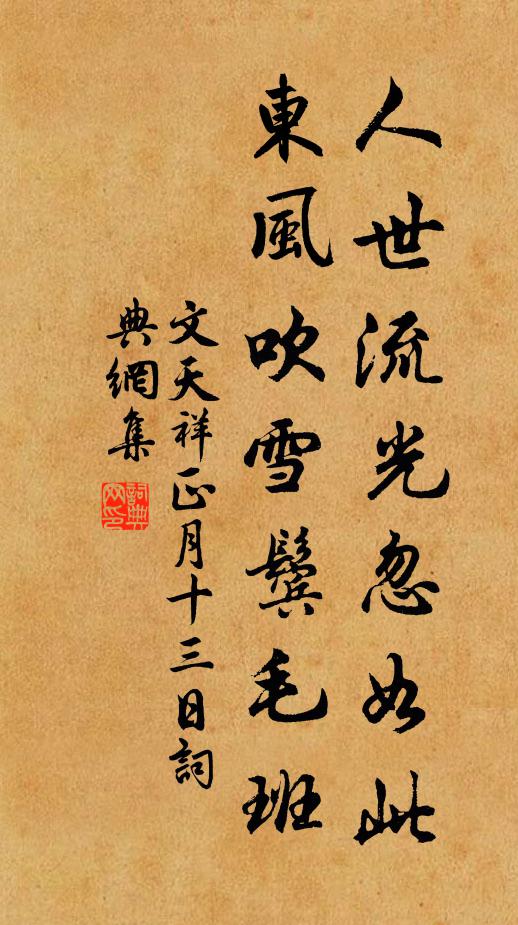 人世流光忽如此
東風吹雪鬓毛班
文天祥正月十三日詞
典網集
詞典
网印